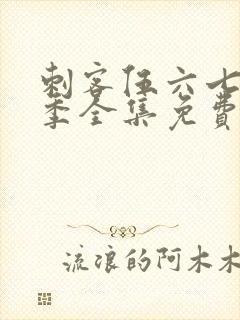 刺客伍六七
季全集免费
流浪的阿木木